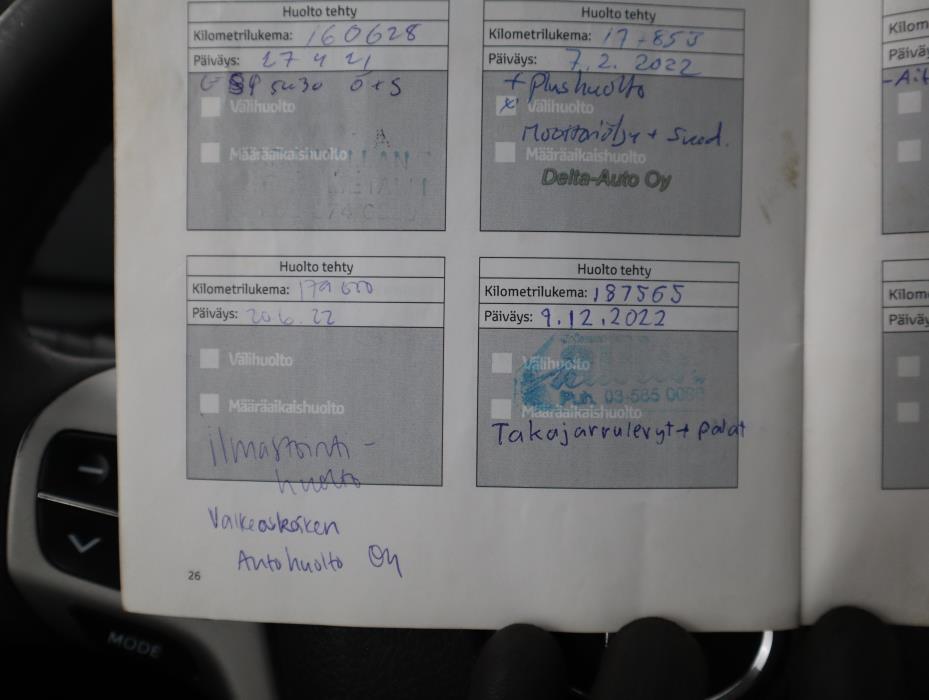 Huolto tehty
Kilometrilukema: 160628
Päiväys: 27 4 21
5w30 Ö+S
Välihuolto
Määräaikaishuolto
Huolto tehty
Kilometrilukema:
Päiväys: 7.2.2022
+ Plushuolto
x Välihuolto
Moottoriöljy + Suod.
Määräaikaishuolto
Delta-Auto Oy
Huolto tehty
Kilometrilukema:
Päiväys: 20.6.22
Välihuolto
Määräaikaishuolto
ilmastointi-
huolto
Valkeakosken
Autohuolto Oy
26
Huolto tehty
Kilometrilukema: 187565
Päiväys: 9.12.2022
Välihuolto
Puh. 03-585
Määräaikaishuolto
Takajarrulevyt + palat
Kilom
Päiväy
Kilom
Päiväy
MODE